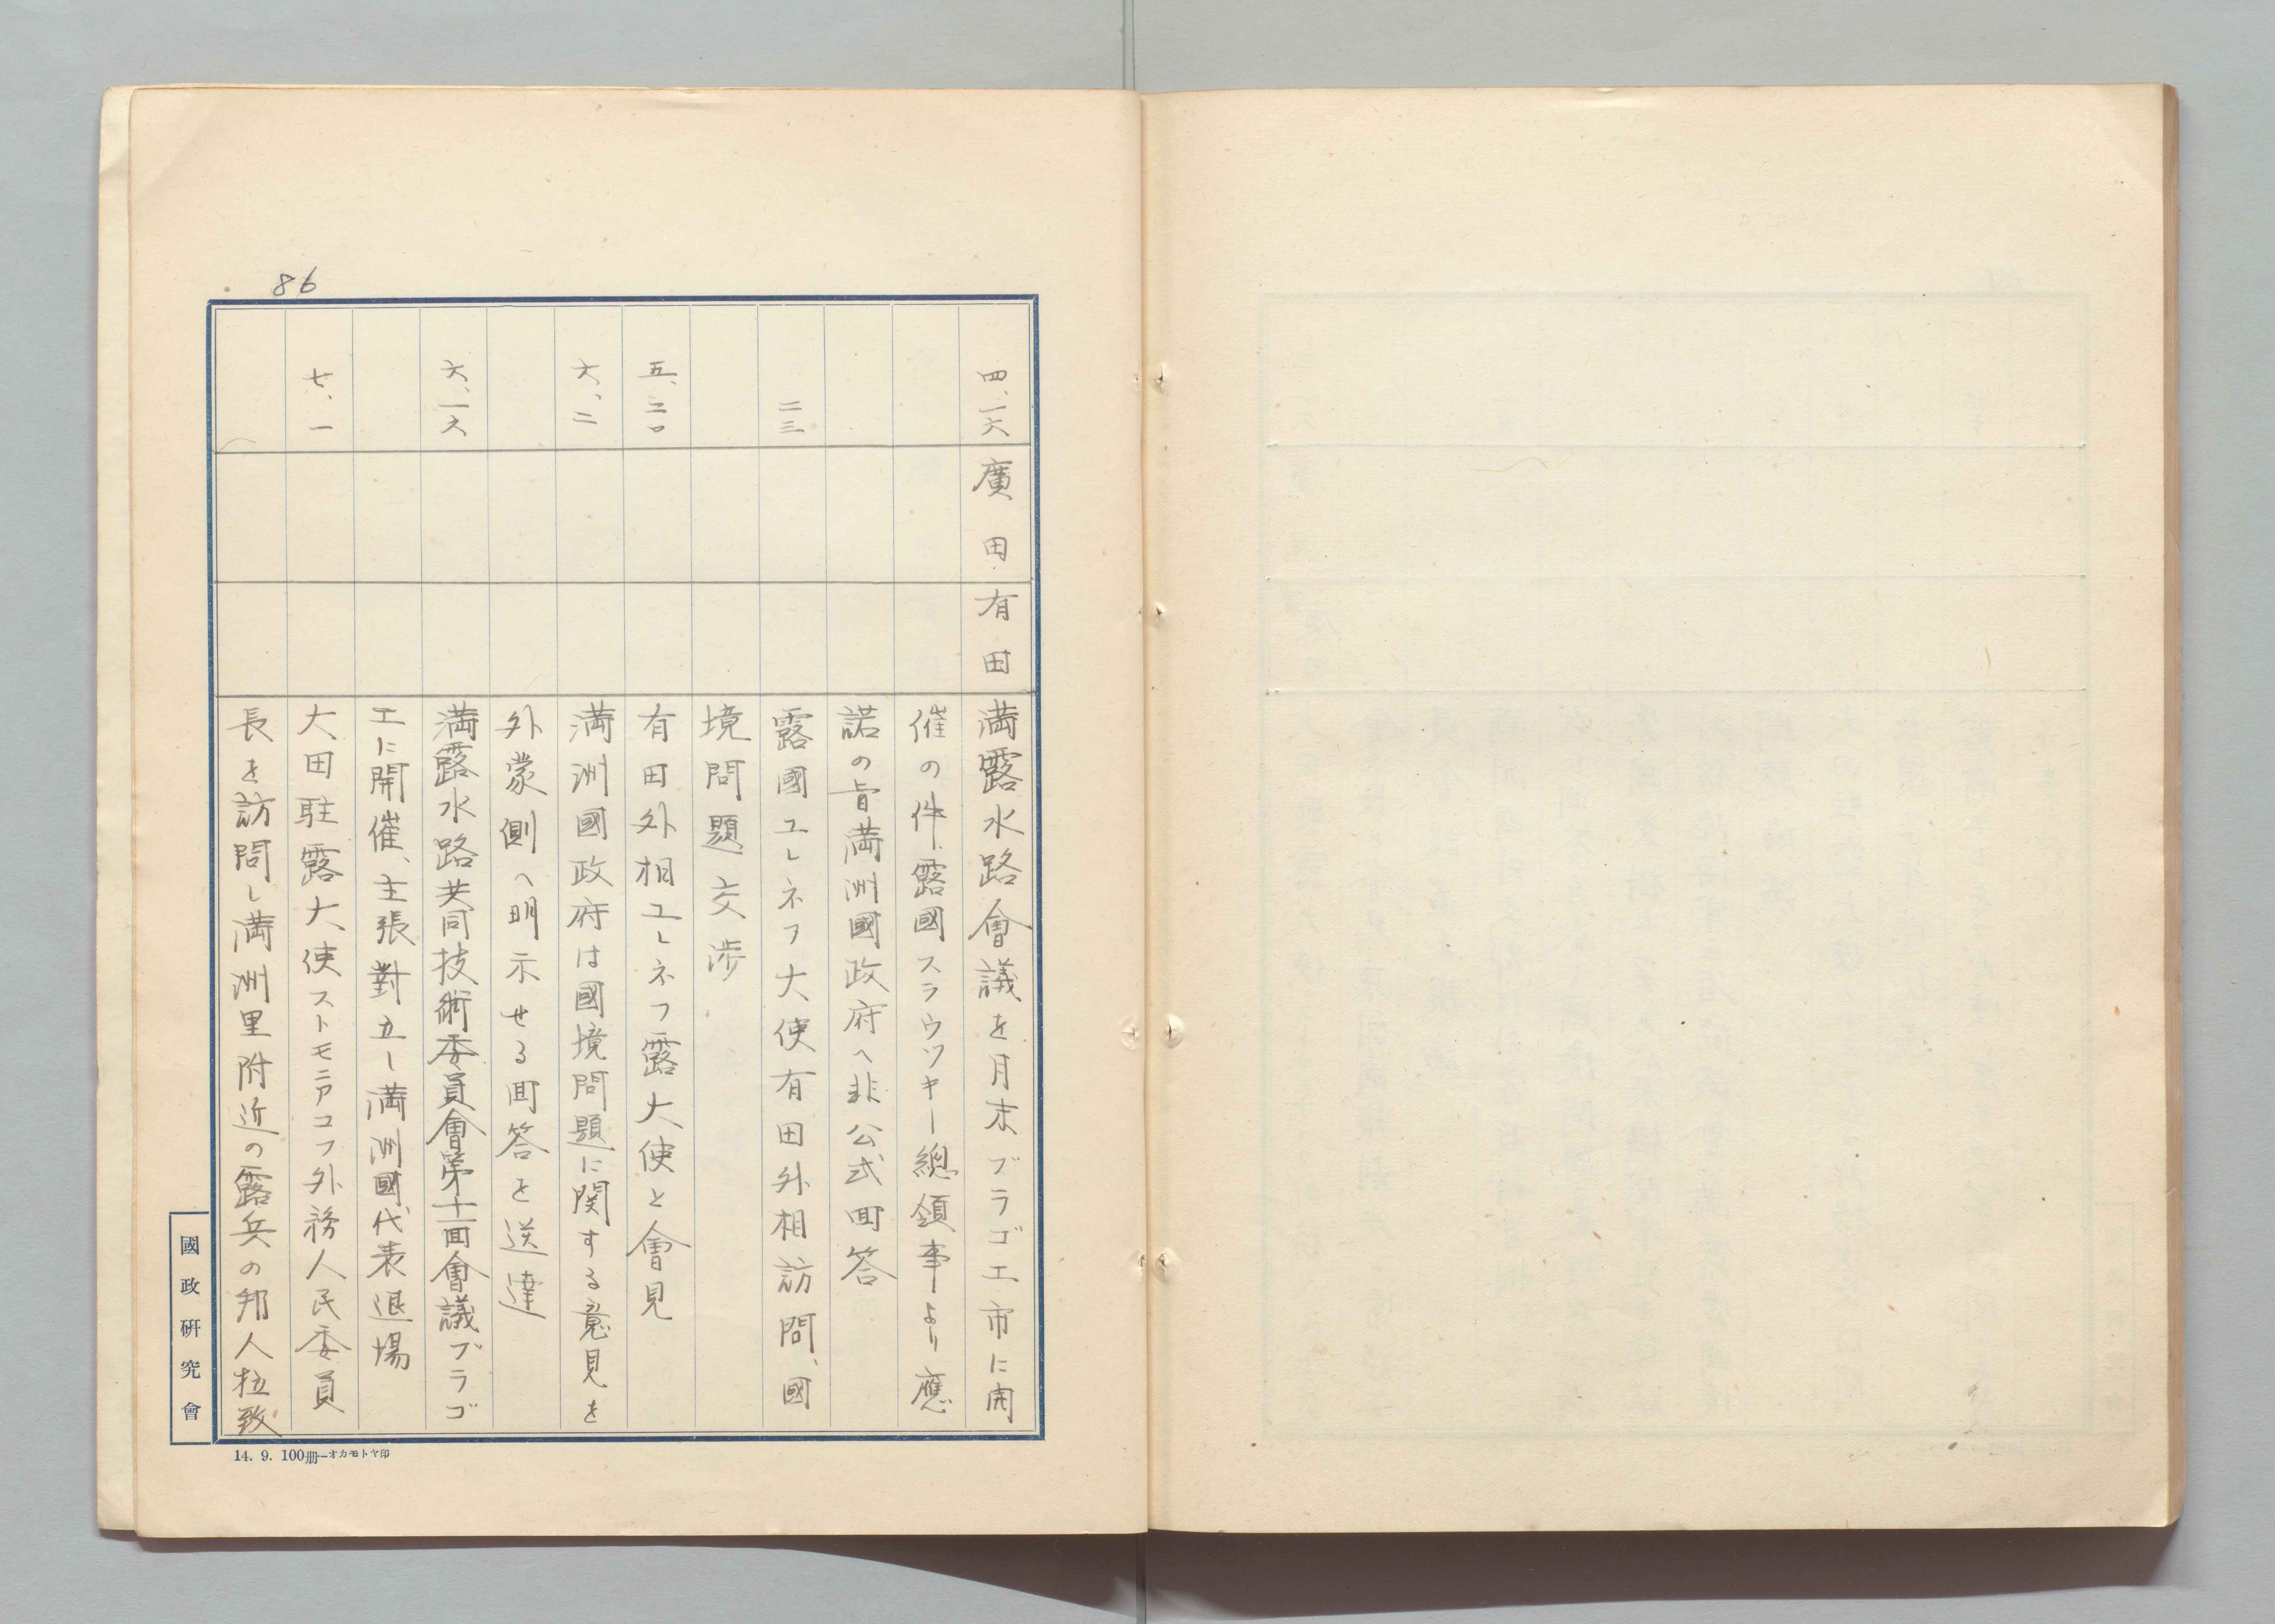 86
四、一六 廣田 有田 満露水路會議を月末ブラゴエ市に開
催の件、露國スラウツキー總領事より應
諾の旨満洲國政府へ非公式回答
二三 露國ユレネフ大使有田外相訪問、國
境問題交渉
五、二〇 有田外相ユレネフ露大使と會見
六、二 満洲國政府は國境問題に関する意見を
外蒙側へ明示せる回答を送達
六、一六 満露水路共同技術委員會第十一回會議ブラゴ
エに開催、主張對立し満洲國代表退場
七、一 大田駐露大使ストモニアコフ外務人民委員
長を訪問し満洲里附近の露兵の邦人拉致
國政研究會
14. 9. 100册—オカモトヤ印